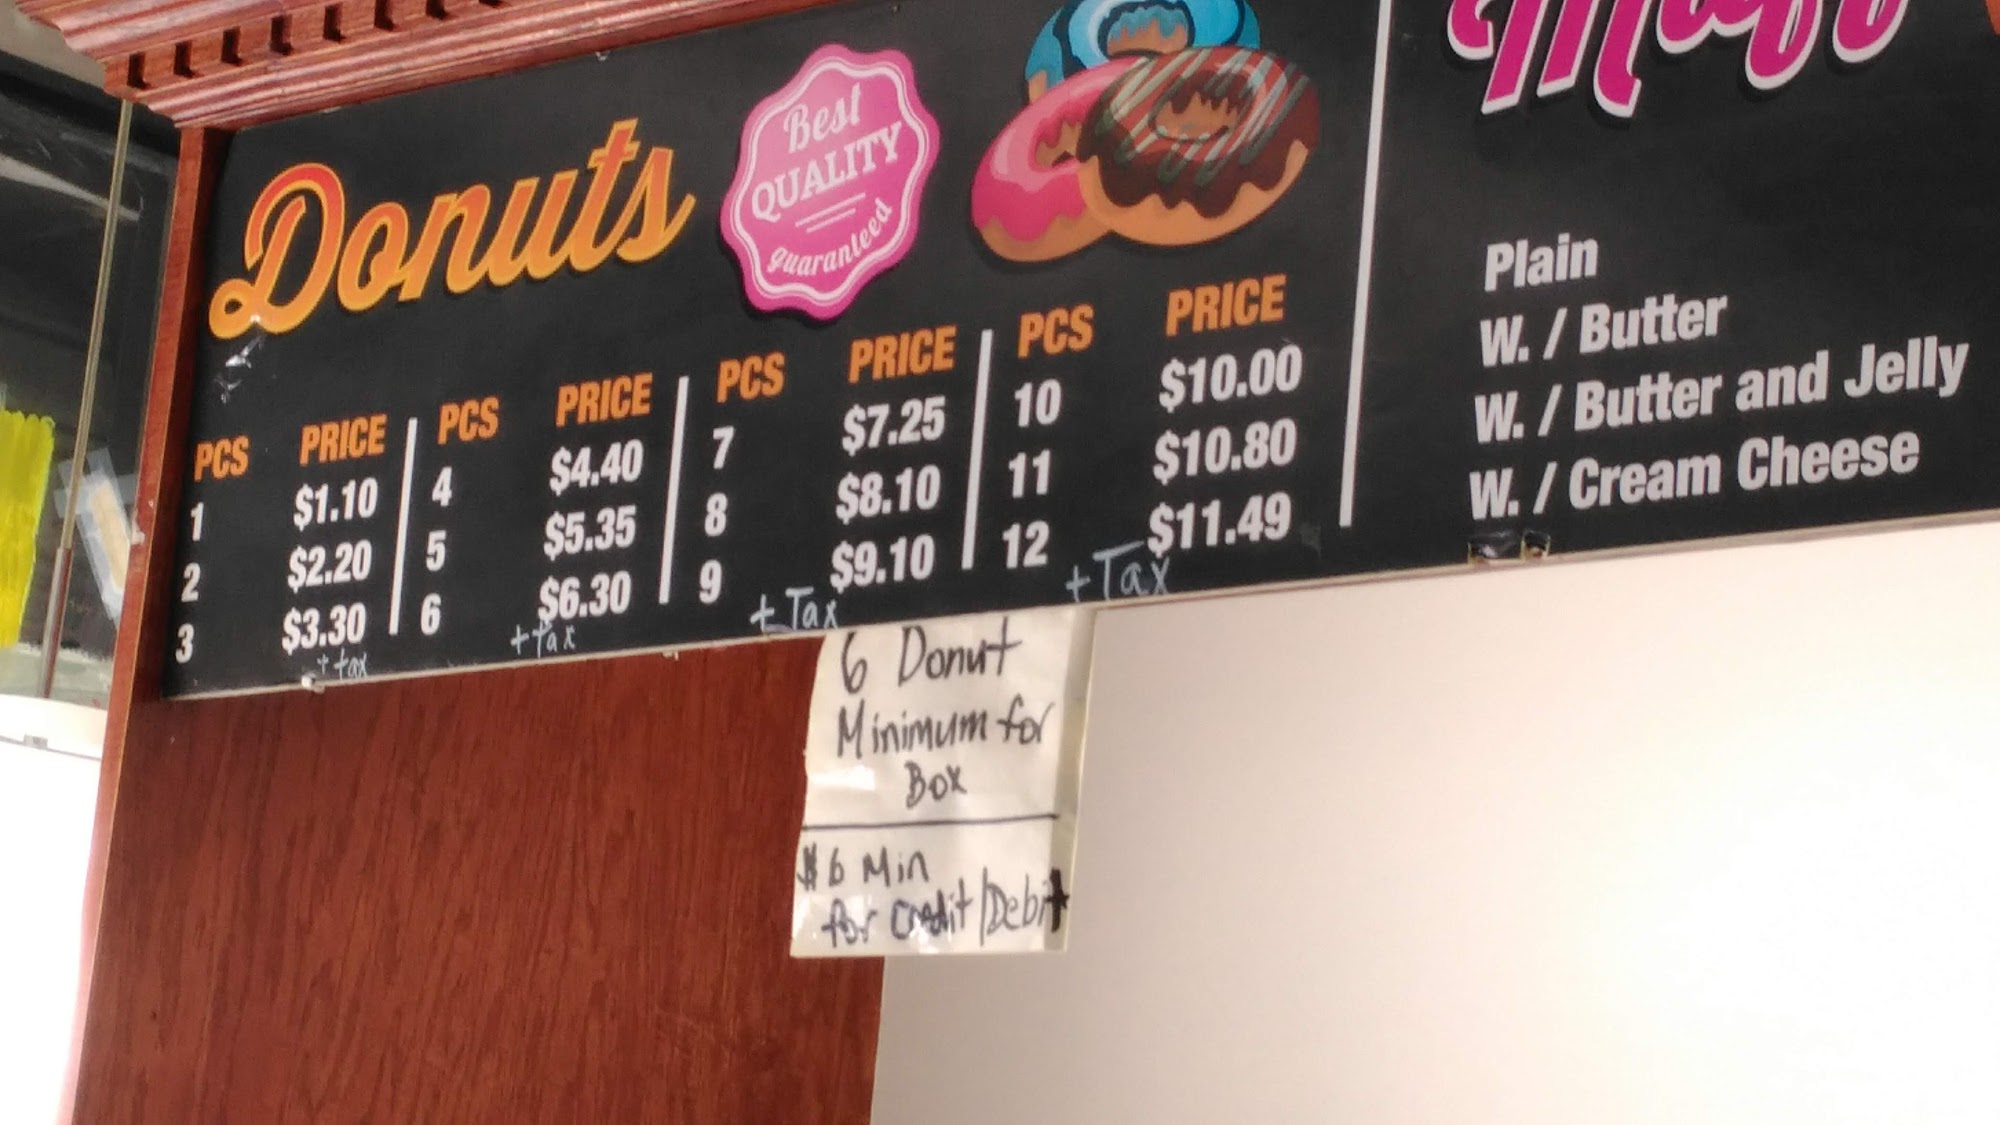 Donuts
Best
QUALITY
guaranteed
PCS PRICE
1 $1.10
2 $2.20
3 $3.30
+ tax
PCS PRICE
4 $4.40
5 $5.35
6 $6.30
+ tax
PCS PRICE
7 $7.25
8 $8.10
9 $9.10
+ Tax
PCS PRICE
10 $10.00
11 $10.80
12 $11.49
+ Tax
Plain
W. / Butter
W. / Butter and Jelly
W. / Cream Cheese
6 Donut
Minimum for
Box
$6 Min
for Credit/Debit